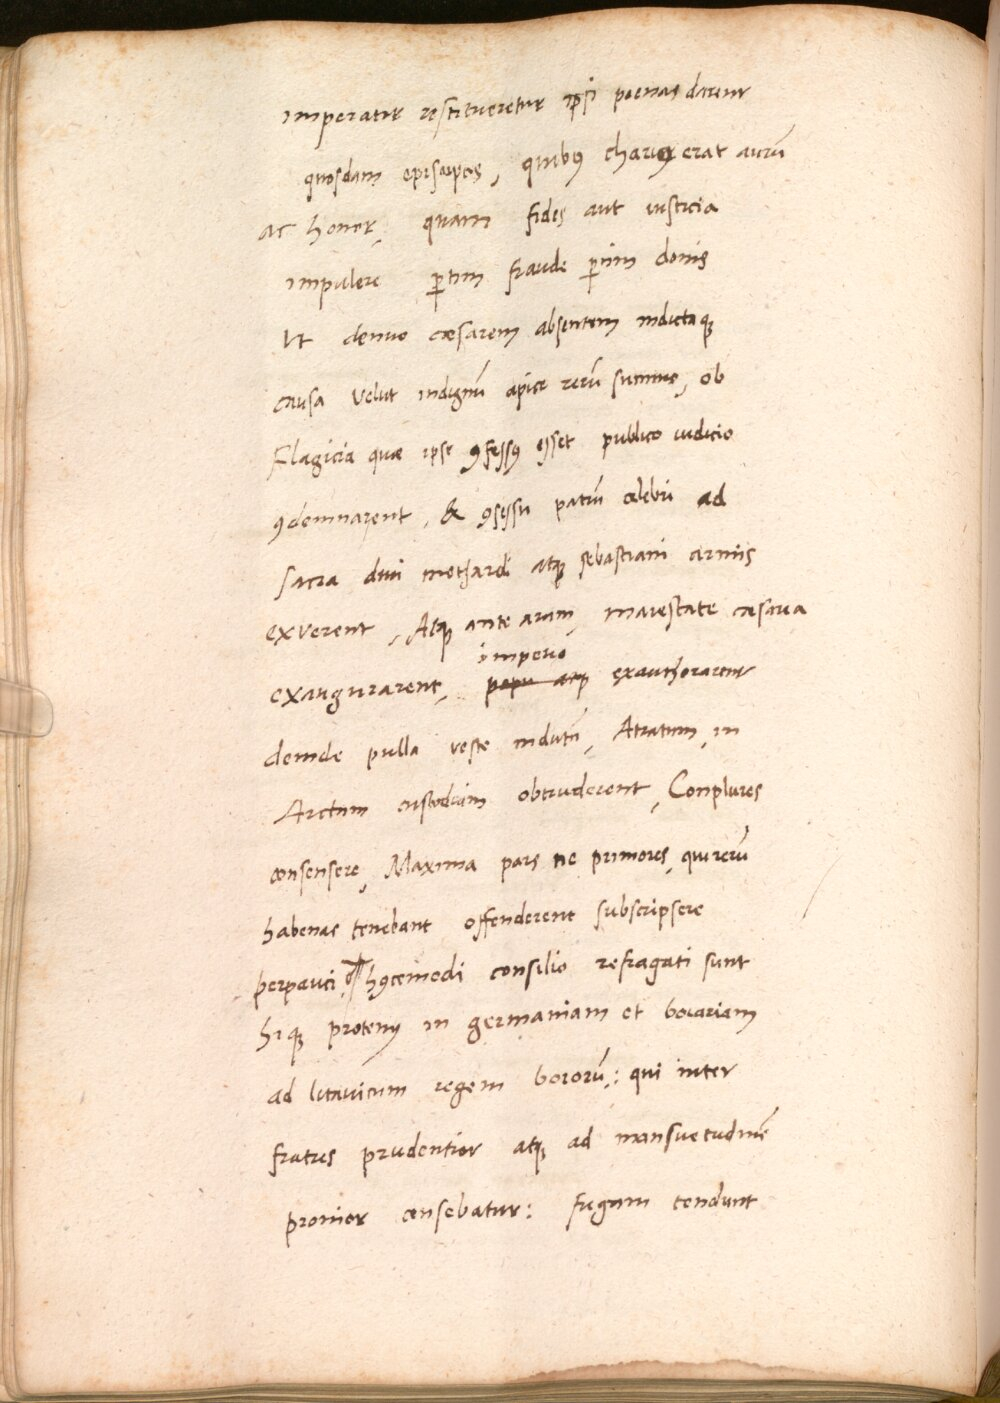 imperator restitueretur ipsi poenas darent
quosdam episcopos, quibꝯ charior erat aurū
ac honor, quam fides aut iusticia
impulere ꝑtim fraude ꝑtim donis
Ut denuo cæsarem absentem indictaqꝫ
causa velut indignū apice rerū summo, ob
Flagicia quæ ipse ꝯfessꝯ esset publico iudicio
ꝯdemnarent, & ꝯsessu patrū celebri ad
sacra diui methardi atqꝫ sebastiani armis
exuerent, Atqꝫ ante aram, maiestate cæsarea
imperio
exaugurarent, exauthorarent
deinde pulla veste indutū, Atratum, in
Arctam custodiam obtruderent, Conplures
consensere, Maxima pars ne primores, qui rerū
habenas tenebant offenderent subscripsere
perpauci hꝯcemodi consilio refragati sunt
hiqꝫ protenꝯ in germaniam et boiariam
ad litauicum regem boiorū: qui inter
fratres prudentior atqꝫ ad mansuetudinē
pronior censebatur: fugam tendunt